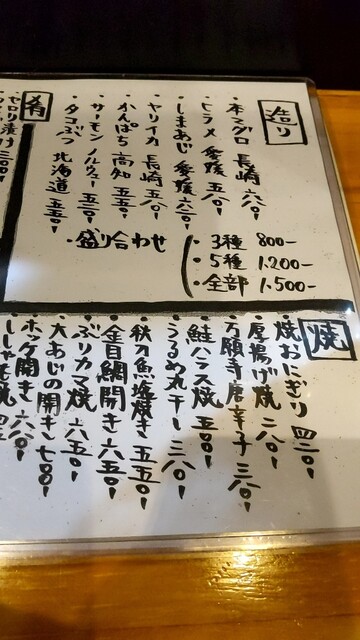 造り
・本マグロ 長崎 六八〇-
・ヒラメ 愛媛 五八〇-
・しまあじ 愛媛 六二〇-
・ヤリイカ 長崎 五八〇-
・かんぱち 高知 五五〇-
・サーモン ノルウェー 五二〇-
・タコぶつ 北海道 五五〇-
・盛り合わせ
・3種 800-
・5種 1.200-
・全部 1.500-
肴
焼
・焼おにぎり 四二〇-
・厚揚げ焼 二八〇-
・万願寺唐辛子 三八〇-
・鮭ハラス焼 五四〇-
・うるめ丸干し 三八〇-
・秋刀魚塩焼き 五五〇-
・金目鯛開き 六五〇-
・ぶりカマ焼 六五〇-
・大あじの開き 七〇〇-
・ホッケ開き 六八〇-